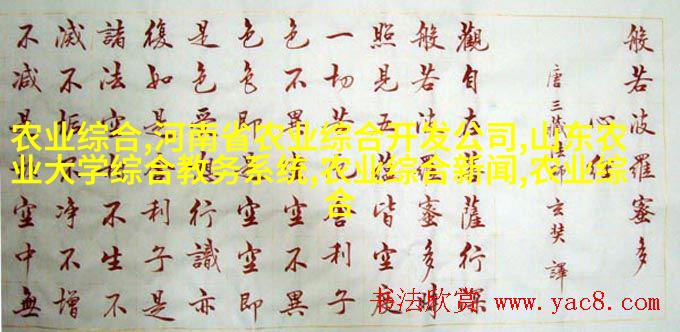 般若波羅蜜多
心经
唐三藏法師玄奘譯
觀自在菩薩行深
般若波羅蜜多時
照見五蘊皆空度
一切苦厄舍利子
色不異空空不異
色色即是空空即
是色受想行識亦
復如是舍利子是
諸法空相不生不
滅不垢不净不增
不減是故空中無
农业综合,河南省农业综合开发公司,山东农
业大学综合教务系统,农业综合新闻,农业综
合
书法欣赏 www.yac8.com